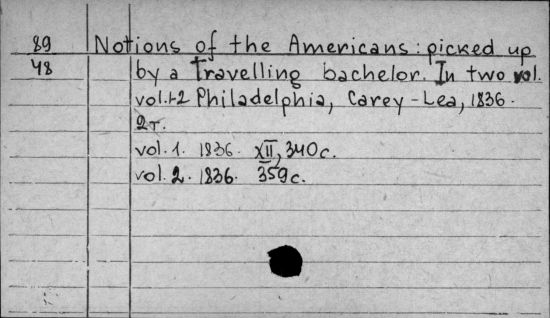 89 Notions of the Americans: picked up
48 by a Travelling bachelor. In two vol.
vol.1-2 Philadelphia, Carey-Lea, 1836.
2т.
vol. 1. 1836. XII, 340c.
vol. 2. 1836. 359c.